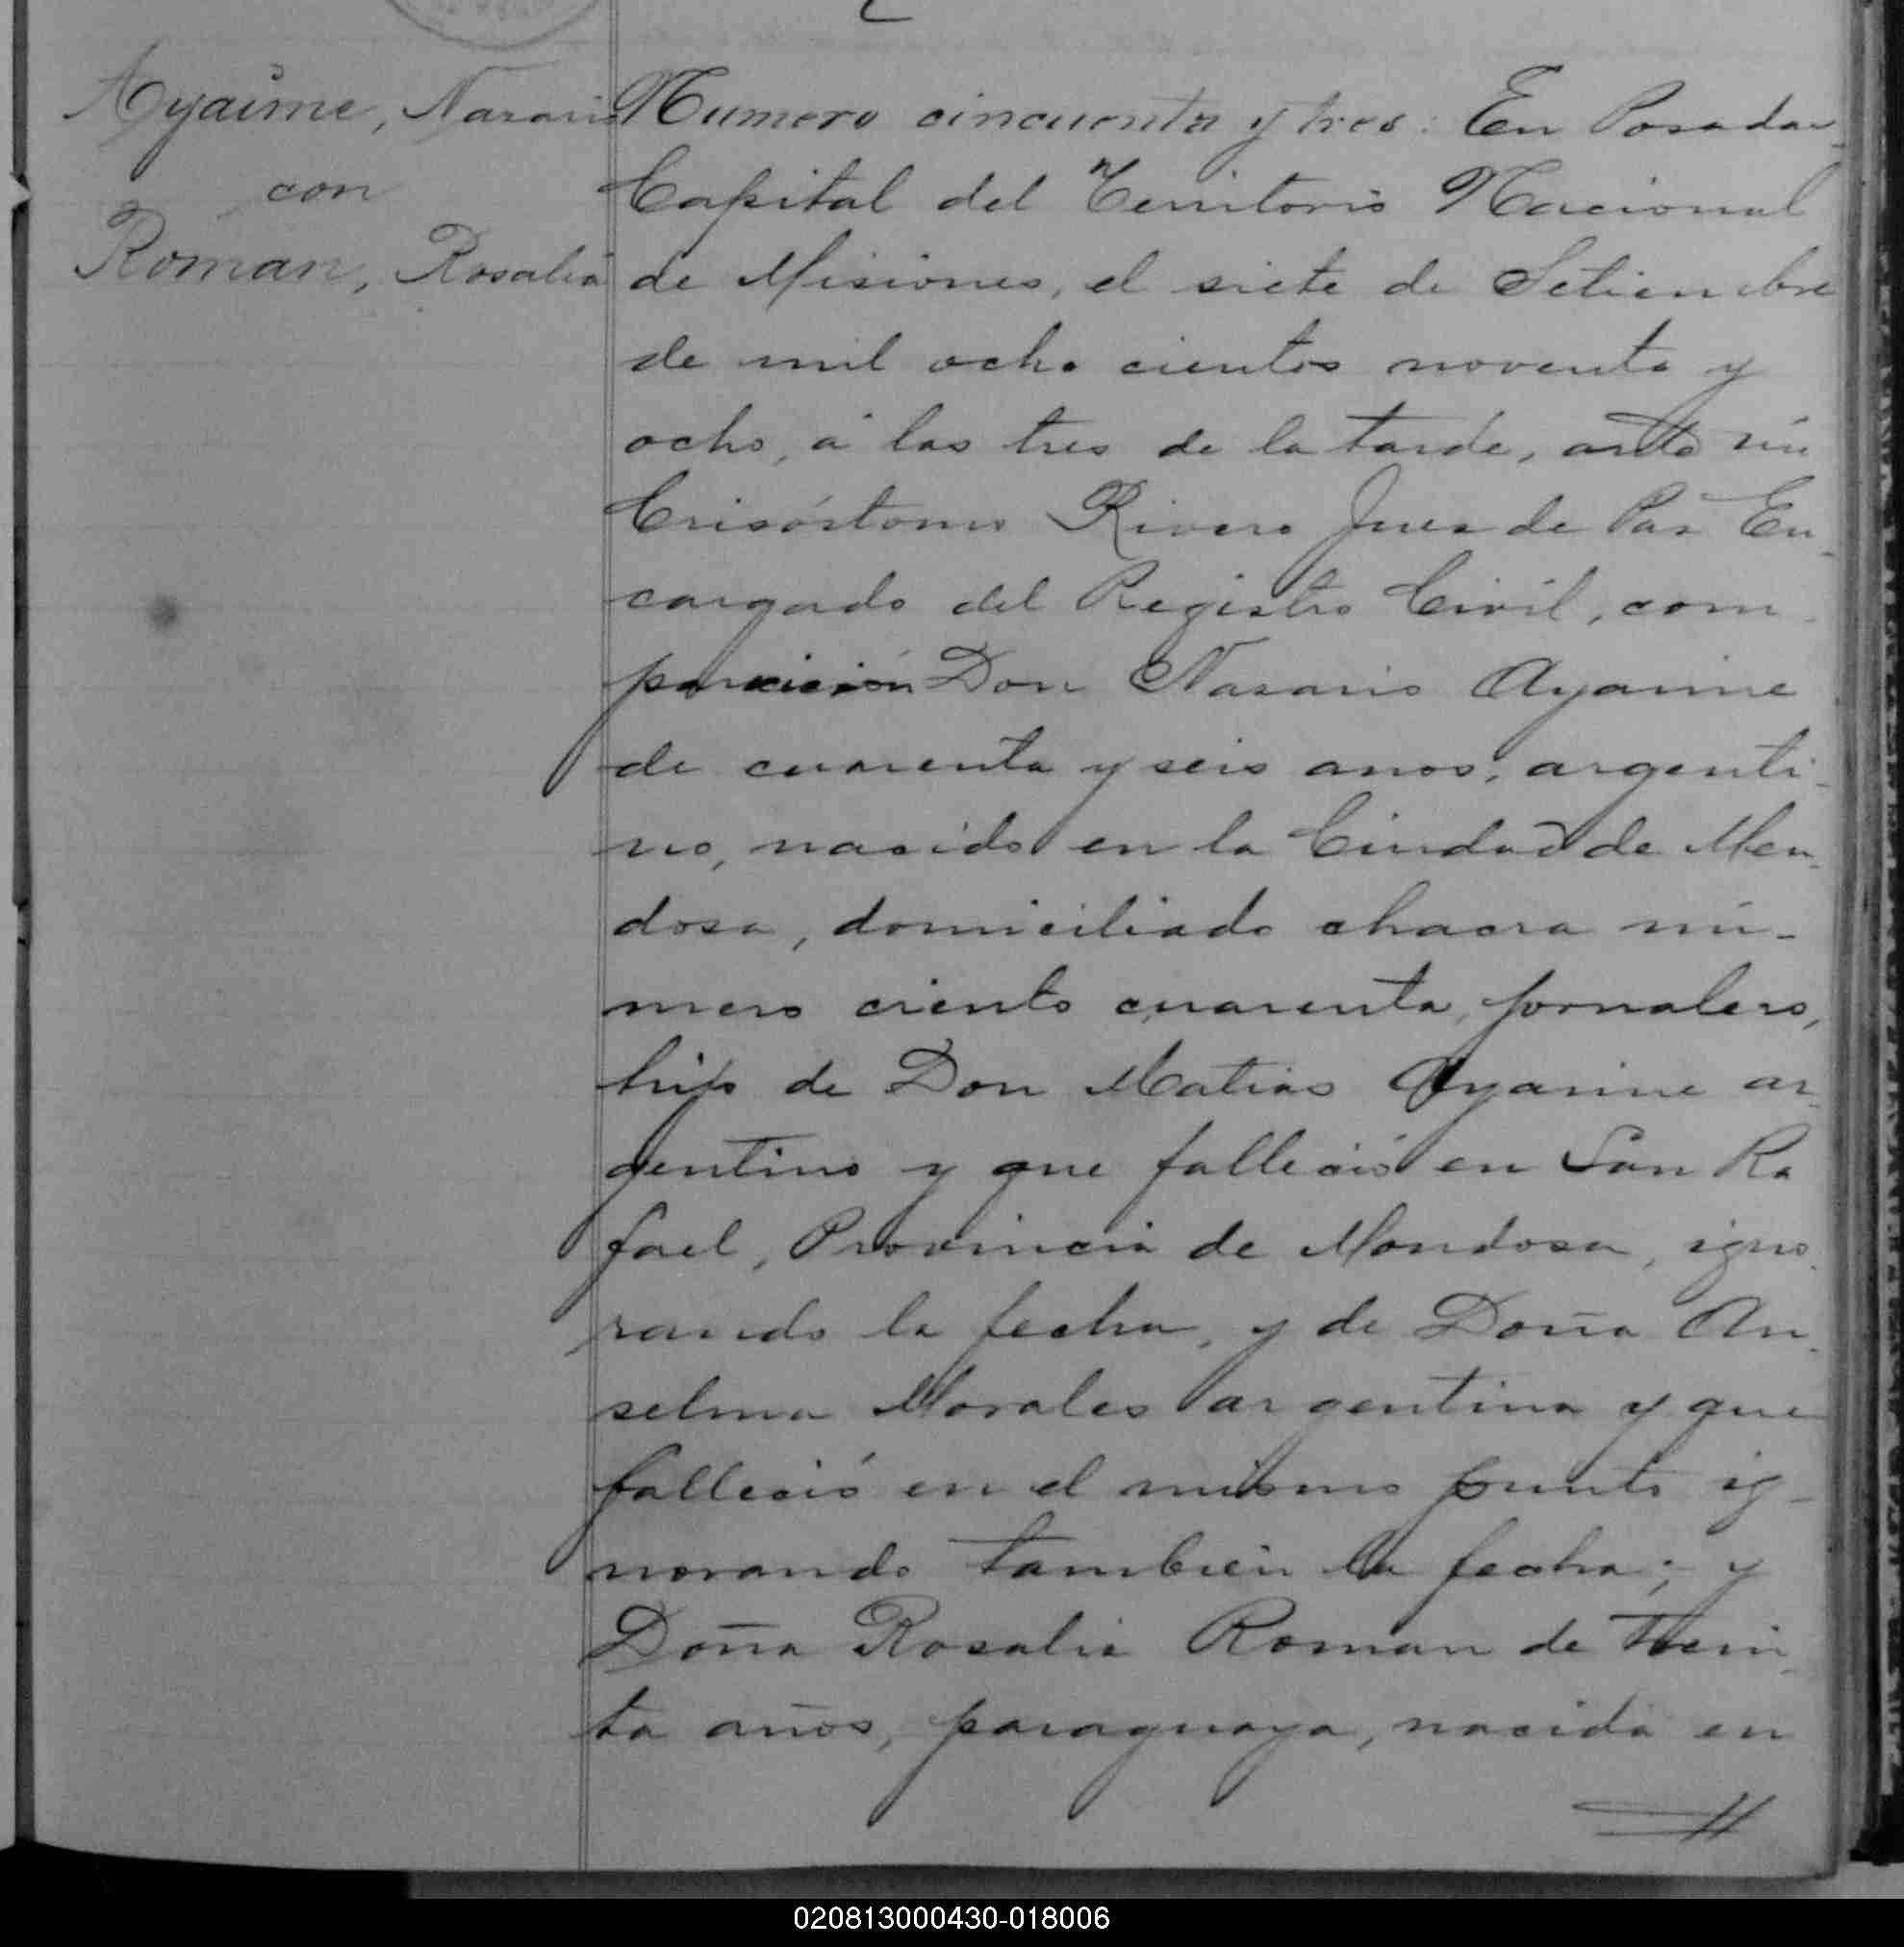 Ayaime, Nazario
con
Roman, Rosalia
Numero cincuenta y tres: En Posadas
Capital del Territorio Nacional
de Misiones, el siete de Setiembre
de mil ocho cientos noventa y
ocho, á las tres de la tarde, ante mi
Crisóstomo Rivero Juez de Paz En-
cargado del Registro Civil, com-
parición Don Nasario Ayaime
de cuarenta y seis anos, argenti-
no, nacido en la Ciudad de Men-
dosa, domiciliado chacra nú-
mero ciento cuarenta, jornalero,
hijo de Don Matias Ayaime ar-
gentino y que falleció en San Ra
fael, Provincia de Mendosa, igno-
rando la fecha, y de Doña An-
selma Morales argentina y que
falleció en el mismo punto ig-
norando tambien la fecha; y
Doña Rosalia Roman de trein-
ta años, paraguaya, nacida en
020813000430-018006